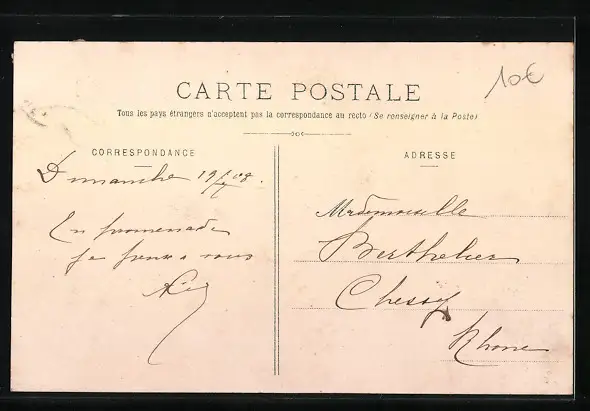 10€
CARTE POSTALE
Tous les pays étrangers n'acceptent pas la correspondance au recto (Se renseigner à la Poste)
CORRESPONDANCE
ADRESSE
Dimanche 19 08.
En promenade
je pense à vous
Mademoiselle
Berthelier
Chessy
Rhône